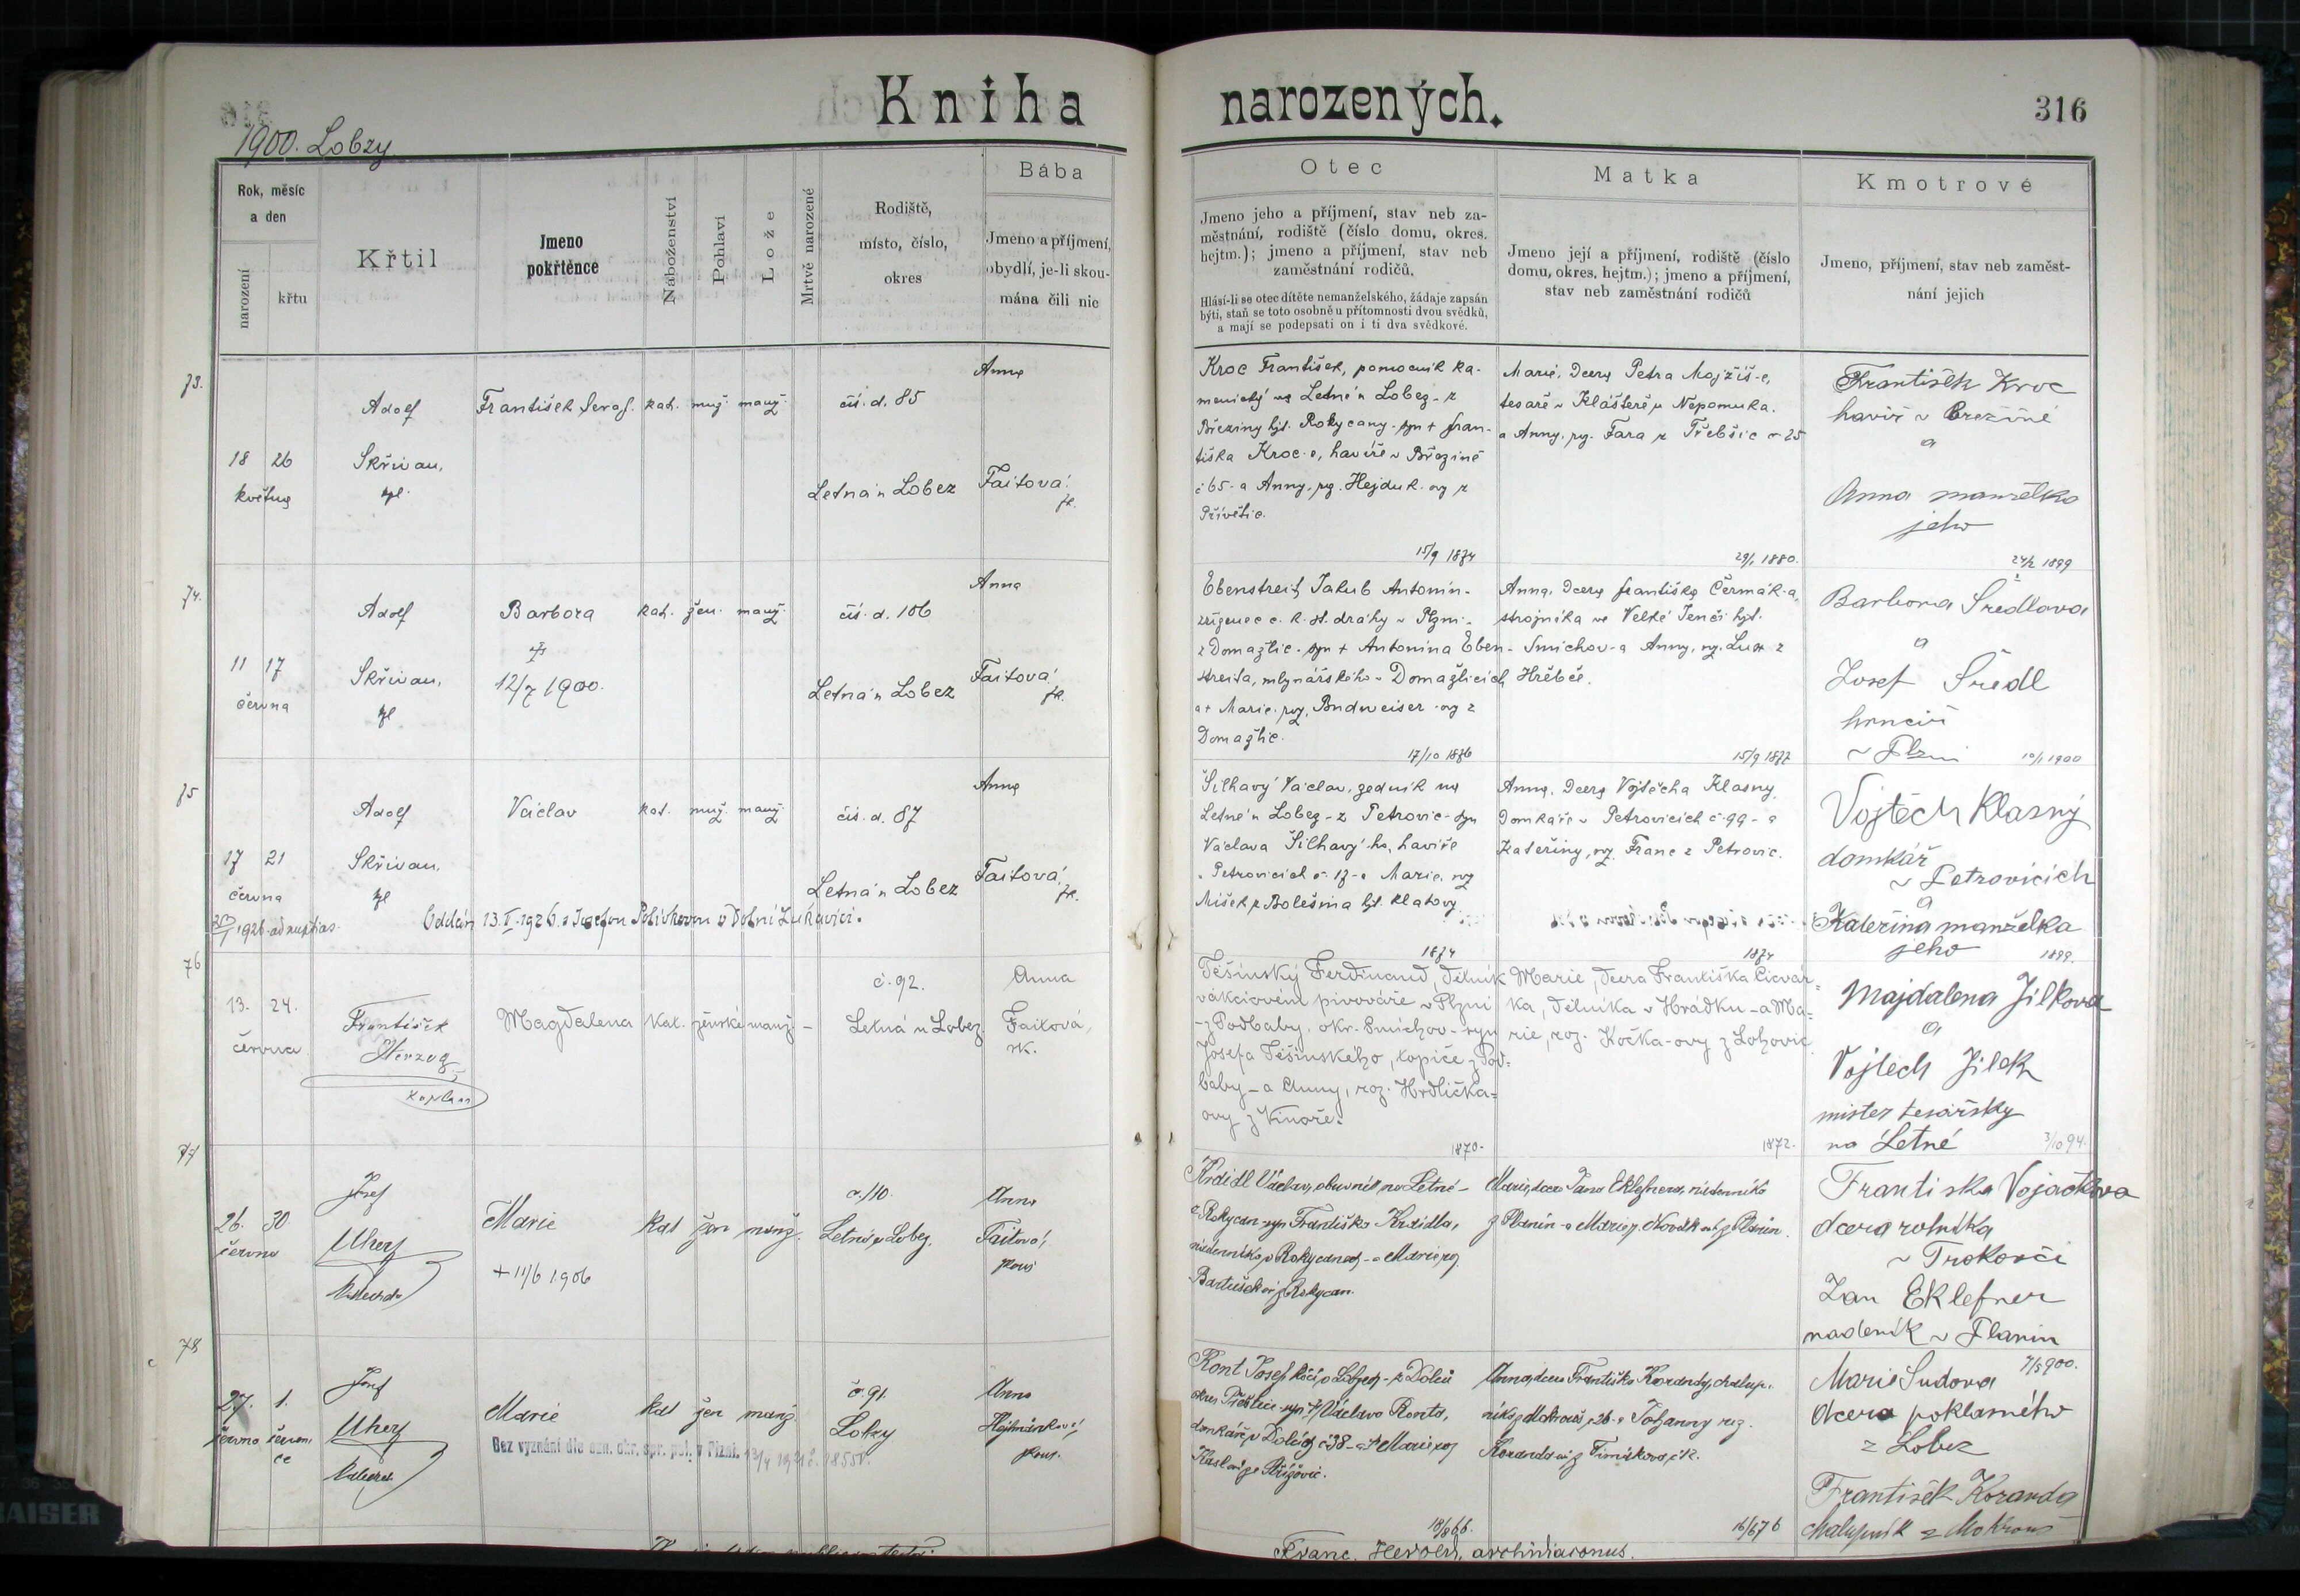 Kniha narozených.
316
1900. Lobzy
Rok, měsíc
a den
narození
křtu
Křtil
Jmeno
pokřtěnce
Náboženství
Pohlaví
Lože
Mrtvě narozené
Rodiště,
místo, číslo,
okres
Bába
Jmeno a příjmení,
obydlí, je-li skou-
mána čili nic
Otec
Jmeno jeho a příjmení, stav neb za-
městnání, rodiště (číslo domu, okres.
hejtm.); jmeno a příjmení, stav neb
zaměstnání rodičů.
Hlásí-li se otec dítěte nemanželského, žádaje zapsán
býti, staň se toto osobně u přítomnosti dvou svědků,
a mají se podepsati on i ti dva svědkové.
Matka
Jmeno její a příjmení, rodiště (číslo
domu, okres. hejtm.); jmeno a příjmení,
stav neb zaměstnání rodičů
Kmotrové
Jmeno, příjmení, stav neb zaměst-
nání jejich
73.
18 26
května
Adolf
Skřivan,
František Seraf. kat. muž. manž.
čís. d. 85
Letná u Lobez
Anna
Faitová
Kroc František, pomocník ka-
menický na Letné u Lobez - z
Březiny hjt. Rokycany - syn + Fran-
tiška Kroc-e, havíře v Březině
č 65 - a Anny, roz. Hejduk-ovy z
Přívětic.
15/9 1874
Marie, dcera Petra Mojžíš-e,
tesaře v Klášteře u Nepomuka.
a Anny, roz. Fara z Třebčic č 25
29/1 1880.
František Kroc
havíř v Březině
a
Anna manželka
jeho
24/2 1899
74.
11 17
června
Adolf
Skřivan,
Barbora kat. žen. manž.
12/7 1900.
čís. d. 106
Letná u Lobez
Anna
Faitová
Ebenstreit Jakub Antonín -
zřízenec c. k. st. dráhy v Plzni -
z Domažlic - syn + Antonína Eben-
streita, mlynářského v Domažlicích
a + Marie, roz. Budweiser-ovy z
Domažlic.
17/10 1876
Anna, dcera Františka Čermák-a,
strojníka ve Velké Jenči hjt.
Smíchov - a Anny, roz. Lux z
Hřebče.
15/9 1877
Barbora Šredlova
a
Josef Šredl
hrnčíř
v Plzni
10/1 1900
75
17 21
června
Adolf
Skřivan,
Václav kat. muž. manž.
čís. d. 87
Letná u Lobez
Anna
Faitová
1926 ad nuptias.
Oddán 13. I. 1926 s Josefou Polívkovou v Dolní Lukavici.
Šilhavý Václav, zedník na
Letné u Lobez - z Petrovic - syn
Václava Šilhavý-ho, havíře
v Petrovicích č. 17 - a Marie, roz.
Míšek z Bolešina hjt. Klatovy
1874
Anna, dcera Vojtěcha Klasny,
domkáře v Petrovicích č. 99 - a
Kateřiny, roz. Franc z Petrovic.
1874
Vojtěch Klasný
domkář
v Petrovicích
a
Kateřina manželka
jeho
1899.
76
13. 24.
června
František
Herzog,
kaplan
Magdalena kat. ženské manž. -
č. 92.
Letná u Lobez.
Anna
Faitová,
zk.
Těšínský Ferdinand, dělník
v akciovém pivováře v Plzni
- z Podbaby, okr. Smíchov - syn
Josefa Těšínského, topiče z Pod-
baby - a Anny, roz. Hrdlička-
ovy z Vinoře.
1870.
Marie, dcera Františka Cicvár-
ka, dělníka v Hrádku - a Ma-
rie, roz. Kočka-ovy z Lohovic.
1872.
Majdalena Jílkova
a
Vojtěch Jílek
mister tesařsky
na Letné
3/10 94.
77
26. 30
června
Josef
Uherz
Marie kat žen manž.
+ 11/6 1906
č. 110.
Letná u Lobez.
Anna
Faitová,
Kraidl Václav, obuvník na Letné -
z Rokycan - syn Františka Kraidla,
nádenníka v Rokycanech - a Marie, roz.
Bartušek z Rokycan.
Marie, dcera Jana Eklefnera, nádenníka
z Planin - a Marie, r. Novák z Planin.
Frantiska Vojačkova
dcera rolníka
v Trokavči
Jan Eklefner
nadeník v Planin
78
27. 1.
června července
Josef
Uherz
Marie kat žen manž.
Bez vyznání dle ozn. okr. spr. pol. v Plzni.
č. 91.
Lobzy
Anna
Hejtmánková,
Ront Josef, kočí v Lobzích - z Dolců
okres Přeštice - syn + Václava Ronta,
domkáře v Dolcích č 38 - a + Marie, roz.
18/8 66.
Anna, dcera Františka Korandy, chalup-
níka z Mokrouš, č 26. a Johanny roz.
Koranda z Timákova, č 12.
16/6 76
7/5 900.
Marie Sudova
dcera poklasného
z Lobez
František Koranda
chalupník z Mokrouš
Franc. Herold, archidiaconus.